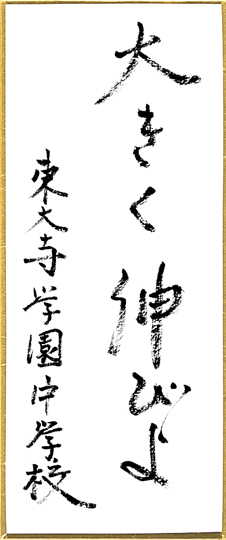 大きく伸びよ
東大寺学園中学校